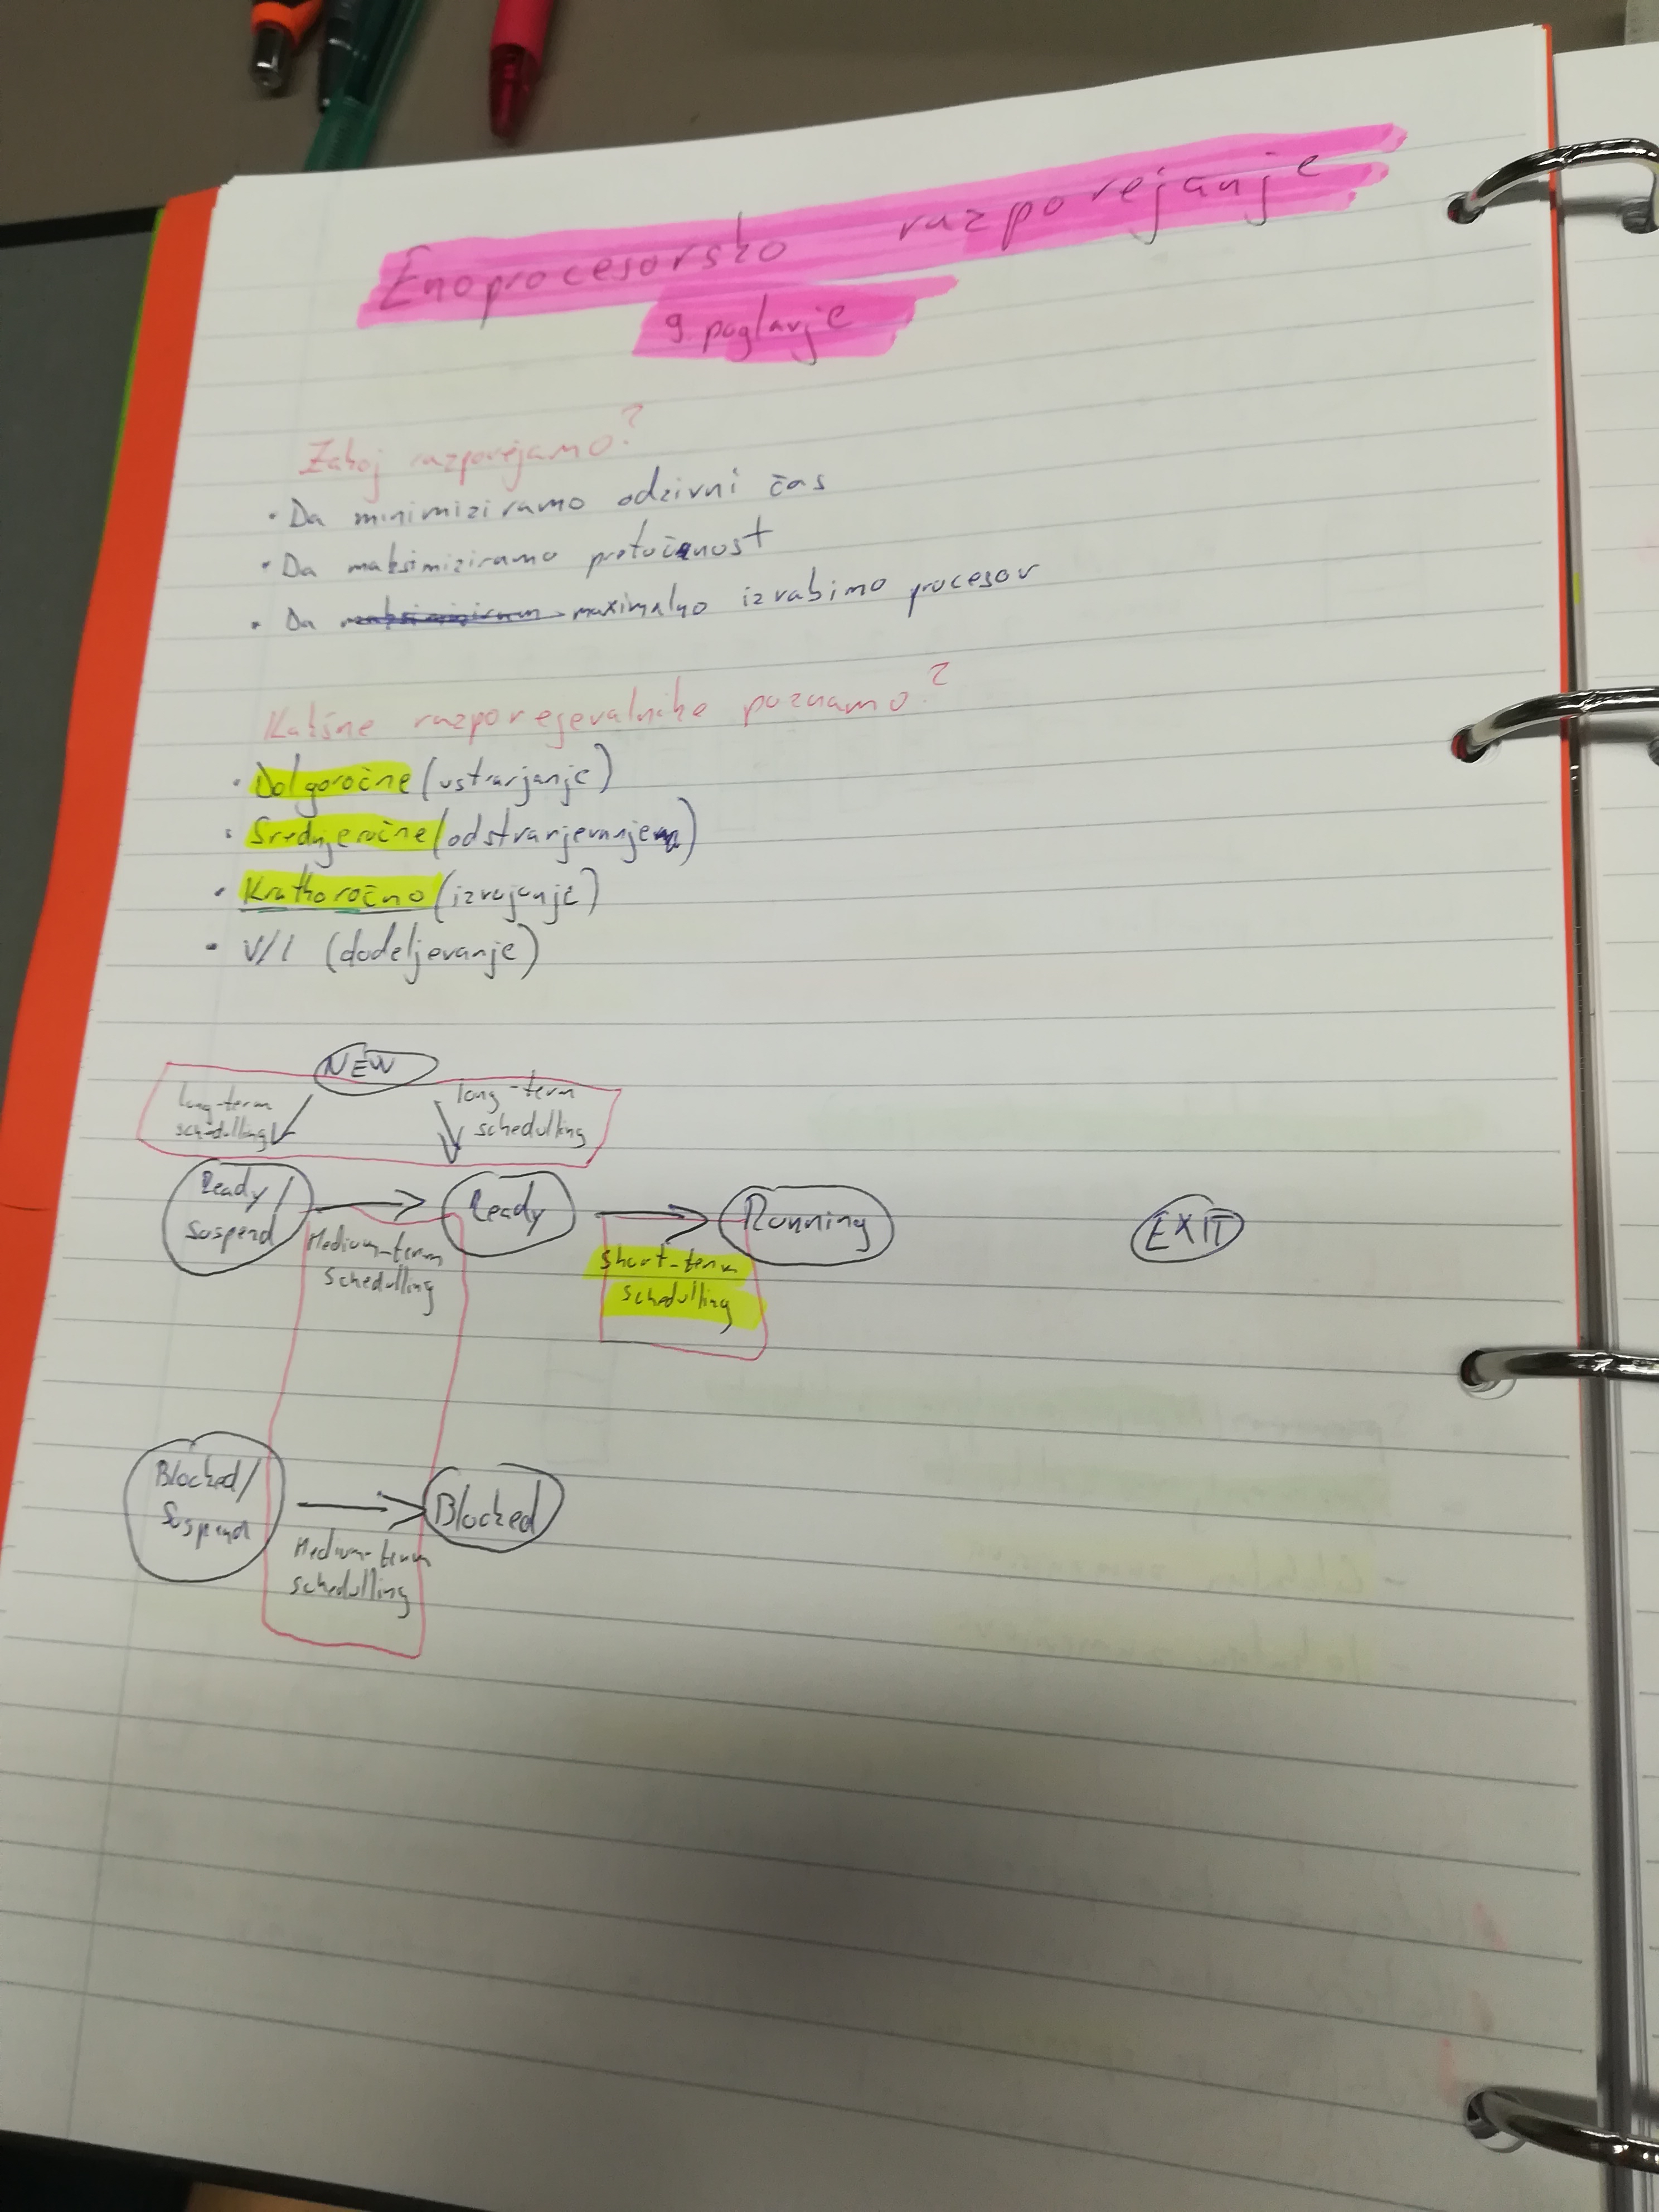 Enoprocesorsko razporejanje
9. poglavje
Zakaj razporejamo?
• Da minimiziramo odzivni čas
• Da maksimiziramo pretočnost
• Da maximalno izrabimo procesor
Kakšne razporejevalnike poznamo?
• Dolgoročne (ustvarjanje)
• Srednjeročne (odstranjevanje)
• Kratkoročno (izvajanje)
• V/I (dodeljevanje)
NEW
long-term
schedulling
long-term
schedulling
Ready/
Suspend
Ready
Running
EXIT
Medium-term
schedulling
short-term
schedulling
Blocked/
Suspend
Blocked
Medium-term
schedulling